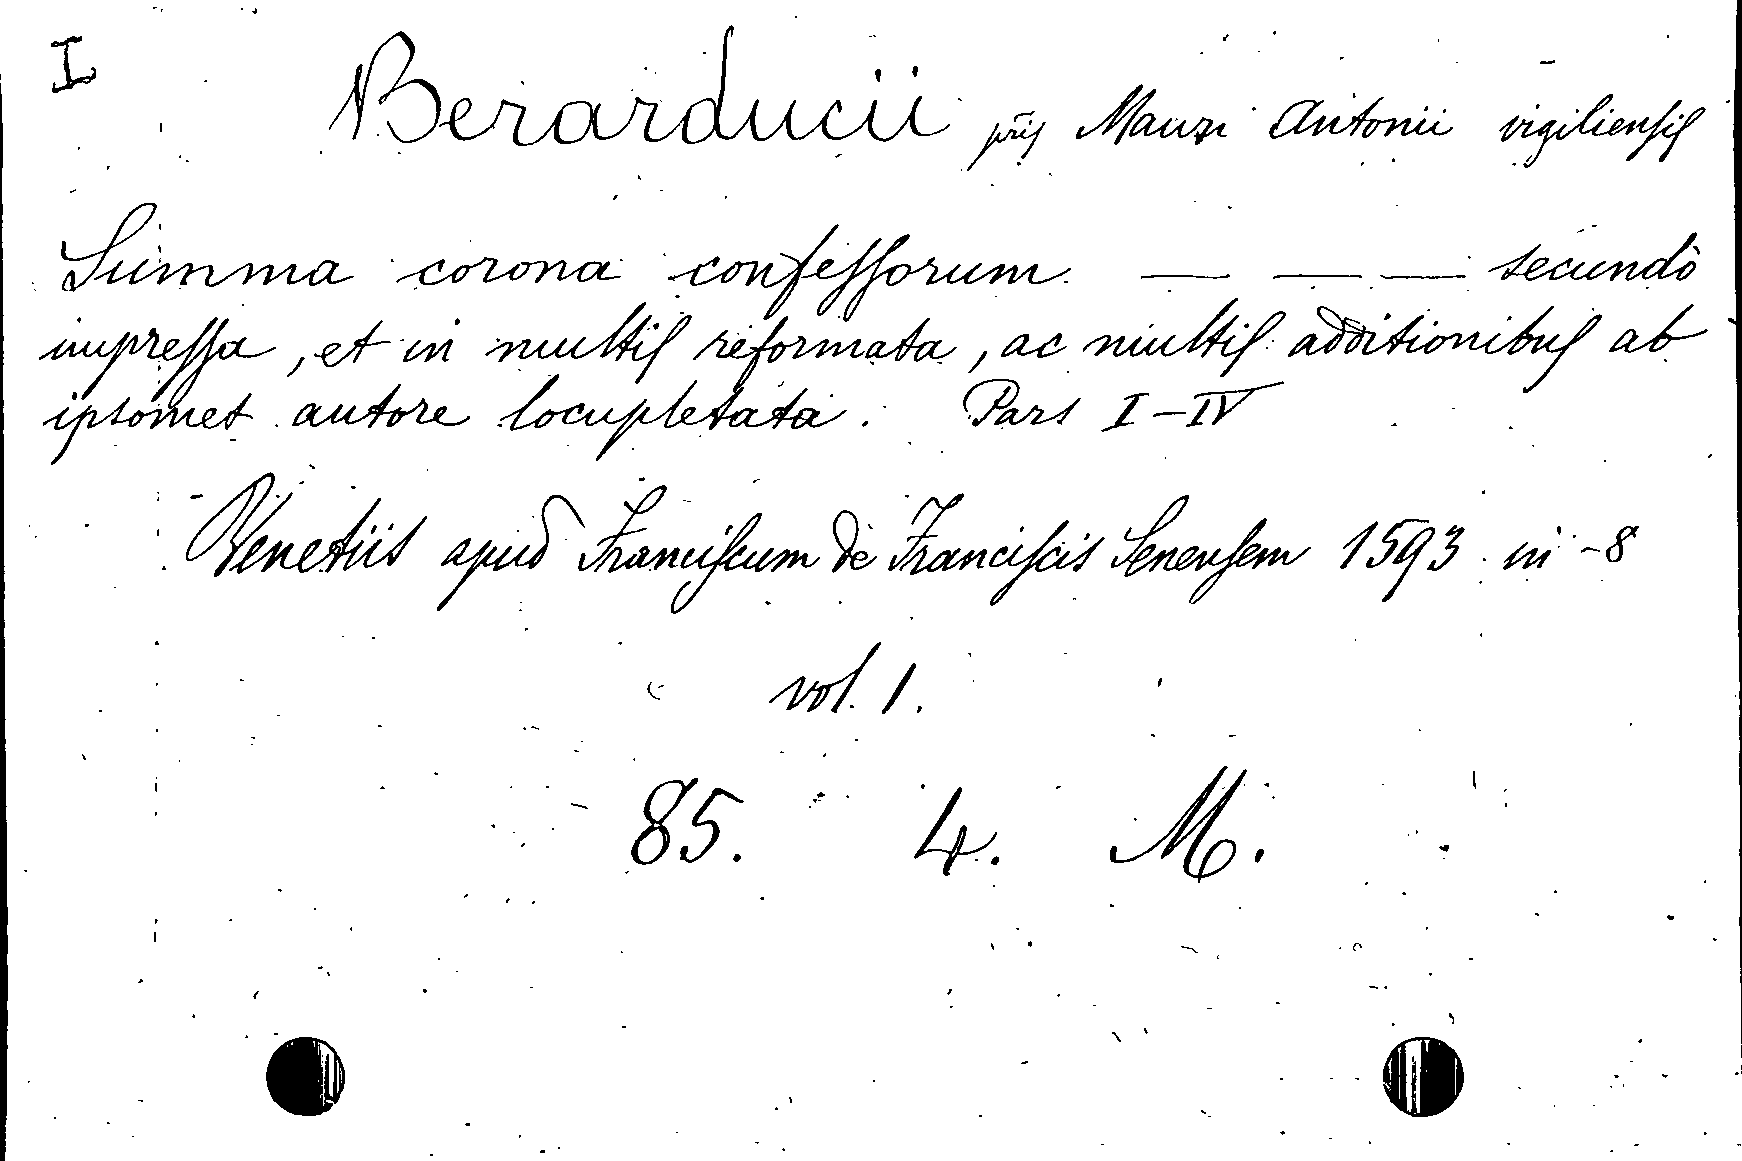 I
Berarducii prĩs Mauri Antonii vigiliensis
Summa corona confessorum — — — secundò
impressa, et in multis reformata, ac multis additionibus ab
ipsomet autore locupletata. Pars I-IV
Venetiis apud Franciscum de Franciscis Senensem 1593 in-8
vol. 1.
85. 4. M.